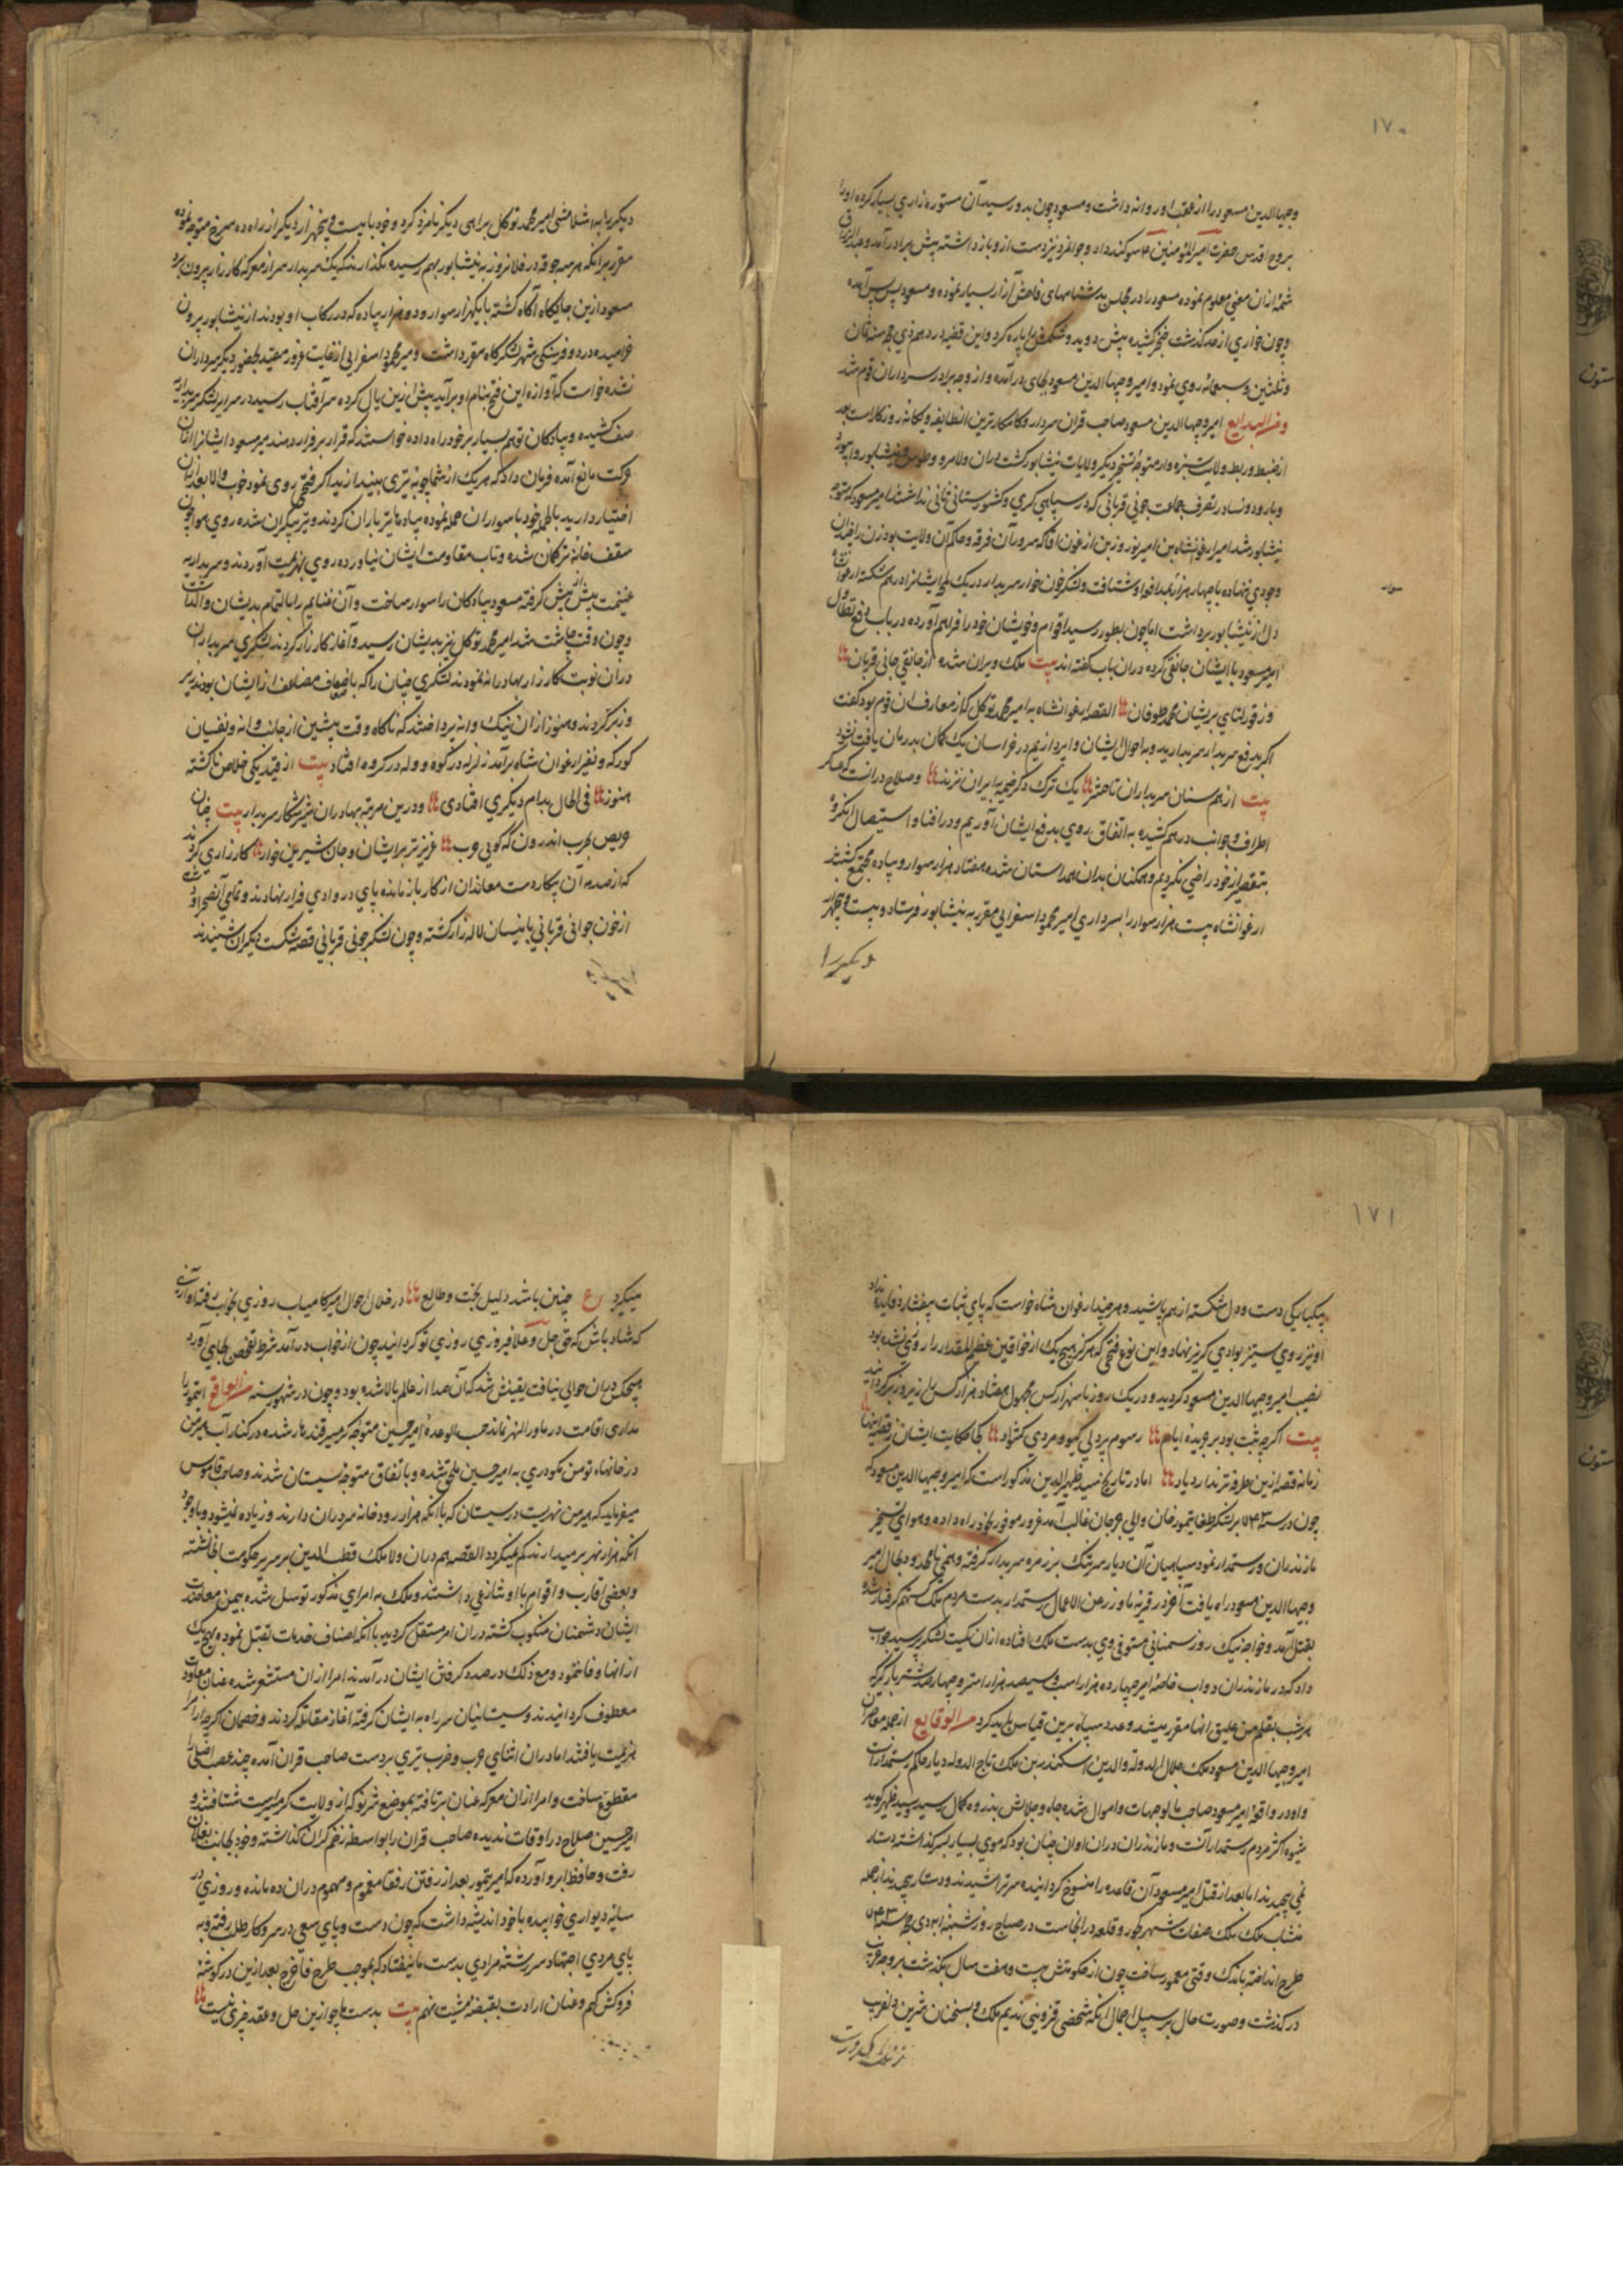 ۱۷۰
وجیه‌الدین مسعود را از عقب او روانه داشت و مسعود چون بدو رسید آن مستوره زاری بسیار کرده او را
بروح اقدس حضرت امیرالمؤمنین سوکند داد و جوانمرد نیز دست از و باز داشته پیش برادر آمد و عبدالرزاق
شمهٔ ازان معنی معلوم نموده مسعود را در مجلس بدشنامهای فاحش آزار بسیار نموده و مسعود پس پس آمده
و چون خواری از حد کذشت خنجر کشیده پیش دوید و شکمش را پاره کرد و این قضیه در دهم ذی حجه سنه ثمان
و ثلثین و سبعمائه روی نمود و امیر وجیه‌الدین مسعود بجای در آمده و از وجه برادر سرداران قوم شد
و من البدایع امیر وجیه الدین مسعود صاحب قران سردار و کامکارترین انطایفه و یکانه روزکار است بعد
از ضبط و ربط ولایت سبزوار متوجه تسخیر دیکر ولایات نیشابور کشت
و بارود و نسا در تصرف جماعت جونی قربانی که در سپاهی کری و کشورستانی ثانی نداشتند امیر مسعود که متوجه
نیشابور شد امیر ارغونشاه بن امیر نوروز بن ارغون اقا که سرور آن فرقه و حاکم آن ولایت بود
وجودی ننهاده با چهار هزار مرد
دل از نیشابور برداشت اما چون بطوس رسید اقوام و خویشان خود را فراهم آورده در باب دفع تطاول
امیر مسعود با ایشان جانقی کرده دران باب کفته اند بیت ملک ویران شده از جانقی جانی قربان
وز قورلتای پریشان محمد طوفان القصه ارغوانشاه به امیر محمد توکل که از معارف ان قوم بود کفت
اکر بدفع سربدار سربداریه و به احوال ایشان وا پردازیم در خراسان یک کمان بدرمان یافت نشود
بیت از هم سنان سربداران تا حشر یک ترک دکر خیمه بایران نزند و صلاح در انست که عساکر
اطراف و جوانب درهم کشیده به اتفاق روی بدفع ایشان آوریم و در افنا و استیصال انکروه
بتقصیر از خود راضی نکردیم و همکنان بدان همداستان شده هفتاد هزار سوار و پیاده مجتمع کشتند
ارغوانشاه بیست هزار سوار را بسرداری امیر محمود اسفراینی مقرر به نیشابور فرستاد و بیست و پنجهزار
دیکر را
دیکر را به امیر محمد توکل براهی دیکر نامزد کرد و خود با بیست و پنجهزار دیکر از راه ده سرخ متوجه نموده
مقرر برانکه هر سه جوقه در فلان روز به نیشابور بهم رسیده نکذارند که یک سربدار سر از معرکه کارزار بیرون برد
مسعود ازین جایکاه آکاه کشته با یکهزار سوار و دو هزار پیاده که در رکاب او بودند از نیشابور بیرون
خرامیده در دو فرسنکی شهر لشکرکاه مقرر داشت و میر محمود اسفراینی از غایت غرور مقید بحضور دیکر سرداران
نشده خواست که آوازه این فتح بنام او برآید پیش از
صف کشیده و پیادکان توهم بسیار بر خود راه داده خواستند که قرار بر فرار دهند میر مسعود ایشانرا از ان
حرکت مانع آمده فرمان داد که هر یک از شما چوبه تیری بیندازید اکر فتحی روی نمود خوب والا بعد ازان
اختیار دارید بالجمله خود با سواران حمله نموده پیاده ها تیر باران کردند و تیر بیکران شده روی هوا چون
سقف خانه ترکمان شده و تاب مقاومت ایشان نیاورده روی بهزیمت آوردند و سربداریه
غنیمت بیش از پیش کرفته مسعود پیادکان را سوار ساخت و آن غنایم را بالتمام بدیشان وا کذاشت
و چون وقت چاشت شد امیر محمد توکل نیز بدیشان رسید و آغاز کارزار کردند لشکری سربداران
دران نوبت کارزار بهادرانه نمودند لشکری چنان را که باضعاف مضاعف از ایشان بودند زیر
و زبر کردند و هنوز از ان نیک وا نه پرداختند که ناکاه وقت پیشین از جانب
کورکه و نفیر ارغوان شاه برآمد زلزله در کوه و ولوله در کروه افتاد بیت از قید یکی خلاص ناکشته
هنوز فی الحال بدام دیکری افتادی و درین مرتبه بهادران شیر شکار سربدار بیت چنان
حریص بحرب اندرون که کویی حرب عزیزتر بر ایشان ز جان شیرین خوار کارزاری کردند
که از صدمه آن پیکار دست معاندان از کار باز مانده پای در وادی فرار نهادند و تمامی آنصحرا و دشت
از خون جوانی قربانی با نیسان لاله زار کشته و چون لشکر جونی قربانی قصه شکست دیکران شنیدند
۱۷۱
بیکبارکی دست و دل شکسته از هم پاشید و هر چند ارغوان شاه خواست که پای ثبات بیفشارد فایده نداد
او نیز روی ستیز بوادی کریز نهاد و این نوع فتحی که هرکز هیچ یک از خواقین عظیم المقدار را روی نشده بود
نصیب امیر وجیه الدین مسعود کردید و در یک روز با سه هزار کس مجهول هفتاد هزار کس را زیر و زبر کردانید
بیت اکرچه ثبت بود بر جریدهٔ ایام رسوم پردلی کیو و مردی کشواد
زمانه قصه ازین طرفه‌تر ندارد یاد اما در تاریخ سید ظهیرالدین مذکور است که امیر وجیه الدین مسعود که
چون در سنه ۷۴۳ بر لشکر طغا تیمور خان والی جرجان غالب آمد غرور موفور بخود راه داده و هوای تسخیر
مازندران و رستمدار نمود سپاهیان آن دیار سر تنک بر زمره سربدار کرفته
وجیه الدین مسعود راه یافت آخر در قریه ماوز من الاعمال رستمدار بدست مردم ملک رستم کرفتار شده
بقتل آمد و خواجه نیک روز سمنانی مستوفی وی بدست ملک افتاده ازان کمیت لشکر پرسید جواب
داد که در مازندران دواب خاصه امیر چهارده هزار اسب و سیصد هزار استر و چهارصد شتر بار کیر که
هر شب بقلم من علیق انها مقرر میشد و عدد سپاه برین قیاس باید کرد من الوقایع از جمله معاصران
امیر وجیه الدین مسعود ملک جلال الدوله والدین اسکندر بن ملک تاج الدوله دیار حاکم رستمدار است
و او در واقعه امیر مسعود صاحب مال و جهات و اموال شده جاه و جلالش بذروه کمال رسید سید ظهیر کوید
شیوه اکثر مردم رستمدار آنست و مازندران دران اوان چنان بود که موی بسیار بسر کذاشته دستار
نمی پیچیدند اما بعد از قتل امیر مسعود آن قاعده را منسوخ کردانیده سر تراشیدند و دستار پیچیدند از جمله
منشآت ملک ملک صفات شهر کجور و قلعه در انجاست در صباح روز شنبه ۲۱ ذی حجه سنه ۷۴۶
طرح انداخته باندک وقتی معمور ساخت چون از حکومتش بیست و هفت سال بکذشت بروجه غریب
درکذشت و صورت حال بر سبیل اجمال انکه شخصی قزوینی ندیم ملک و بسخنان شیرین دلفریب
میکرد ع چنین باشد دلیل بخت و طالع در خلال احوال امیر کامیاب روزی بخواب رفته آوازی
که شاد باش که حق جل و علا فیروزی روزی تو کردانید چون از خواب در آمد شرط تفحص بجای آورد
هیچکس دران حوالی نیافت یقینش شد که آن صدا از عالم بالا شده بود و چون در شهور سنه من الوقایع
مداری اقامت در ماورالنهر نماند حسب الوعده امیر حسین متوجه کرمسیر قندهار شده در کنار آب هیرمن
در خانهاء تومن نکودری به امیر حسین ملحق شده و باتفاق متوجه سیستان شدند و صاحب قاموس
میفرماید که هیرمن نهریست در سیستان که با انکه هزار رودخانه سر دران دارند و زیاده نمیشود و با وجود
انکه هزار نهر بر میدارند کم نمیکردد القصه هم دران ولا ملک قطب الدین بر سریر حکومت انجا نشسته
و بعضی اقارب و اقوام با او تنازعی داشتند و ملک به امرای مذکور توسل شده بیمن معاضدت
ایشان دشمنان منکوب کشته دران امر مستقل کردید با انکه اصناف خدمات تقبل نموده هیچیک
از انها وفا ننمود و مع ذلک در صدد کرفتن ایشان در آمدند امرا ازان مستشعر شده عنان معاودت
معطوف کردانیدند و سیستانیان سر راه به ایشان کرفته آغاز مقاتله کردند و خصمان اکرچه از امرا
هزیمت یافتند اما دران اثنای حرب و ضرب تیری بر دست صاحب قران آمده چند عصب اصلی را
مقطوع ساخت و امرا ازان معرکه عنان بر تافته بموضع شرنو که از ولایت کرمسیرست شتافتند و
امیر حسین صلاح در اوقات ندیده صاحب قران را بواسطه زخم کران کذاشته و خود بجانب بغلان
رفت و حافظ ابرو آورده که امیر تیمور بعد از رفتن رفقا مغموم و مهموم دران ده مانده و روزی در
سایه دیواری خوابیده با خود اندیشه داشت که چون دست و پای سعی در سر و کار طلب رفته و به
پای مردی اجتهاد سر رشته مرادی بدست ما نیفتاد که بموجب طرح فافرج بعد ازین در کوشه
فروکش کنم و عنان ارادت بقبضه مشیت نهم بیت بدست ما چو ازین حل و عقد چیزی نیست